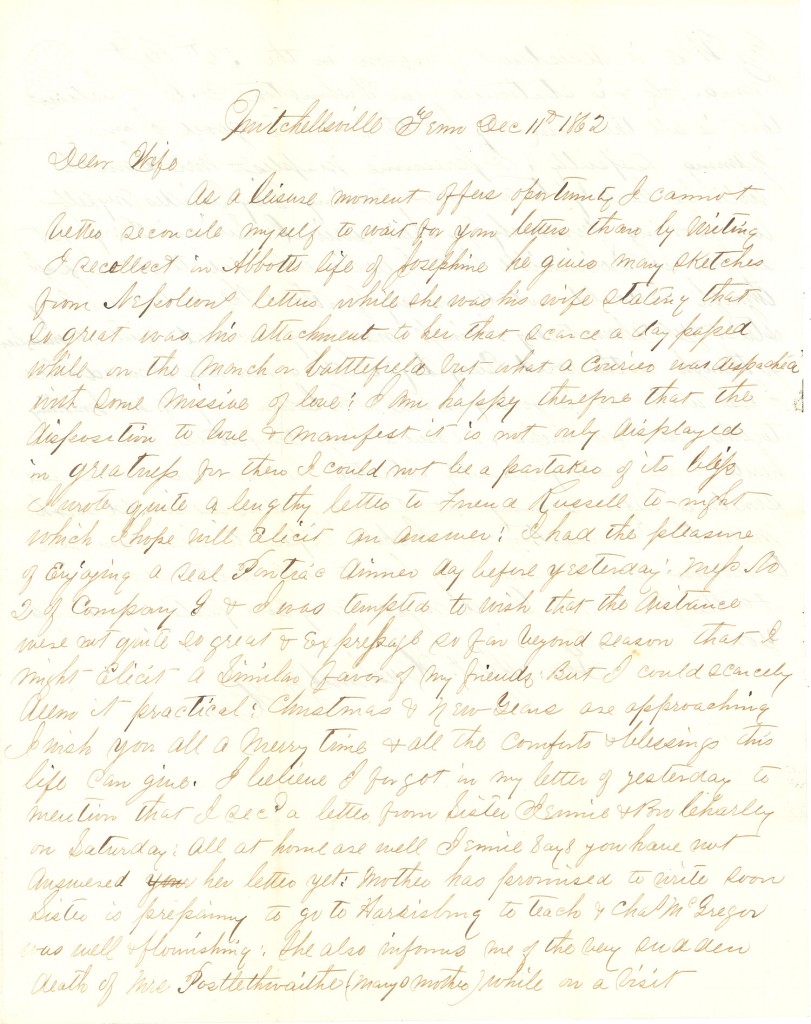 Mitchellsville Tenn Dec 11th 1862
Dear Wife
As a leisure moment offers oportunity I cannot
better reconcile myself to wait for your letters than by writing
I recollect in Abbotts life of Josephine he gives many sketches
from Nepoleons letters while she was his wife stating that
so great was his attachment to her that scarce a day passed
while on the march or battlefield but what a Courier was despached
with some missive of love: I am happy therefore that the
disposition to love & manifest it is not only displayed
in greatness for then I could not be a partaker of its bliss
I wrote quite a lengthy letter to Friend Russell to-night
which I hope will Elicit an answer: I had the pleasure
of Enjoying a real Pontiac dinner day before yesterday. Mess No
2 of Company & I was tempted to wish that the distance
were not quite so great & Expressage so far beyond season that I
might Elicit a Similar favor of my friends. But I could scarcely
deem it practical: Christmas & New Years are approaching
I wish you all a Merry time & all the comforts & blessings this
life can give. I believe I forgot in my letter of yesterday to
mention that I recd a letter from Sister Jennie & Bro Charley
on Saturday: all at home are well Jennie says you have not
answered your her letter yet: Mother has promised to write soon
Sister is preparing to go to Harrisburg to teach & Chas McGregor
was well & flourishing: She also informs me of the very sudden
death of Mrs Postlethwaithe (Marys mother) while on a visit